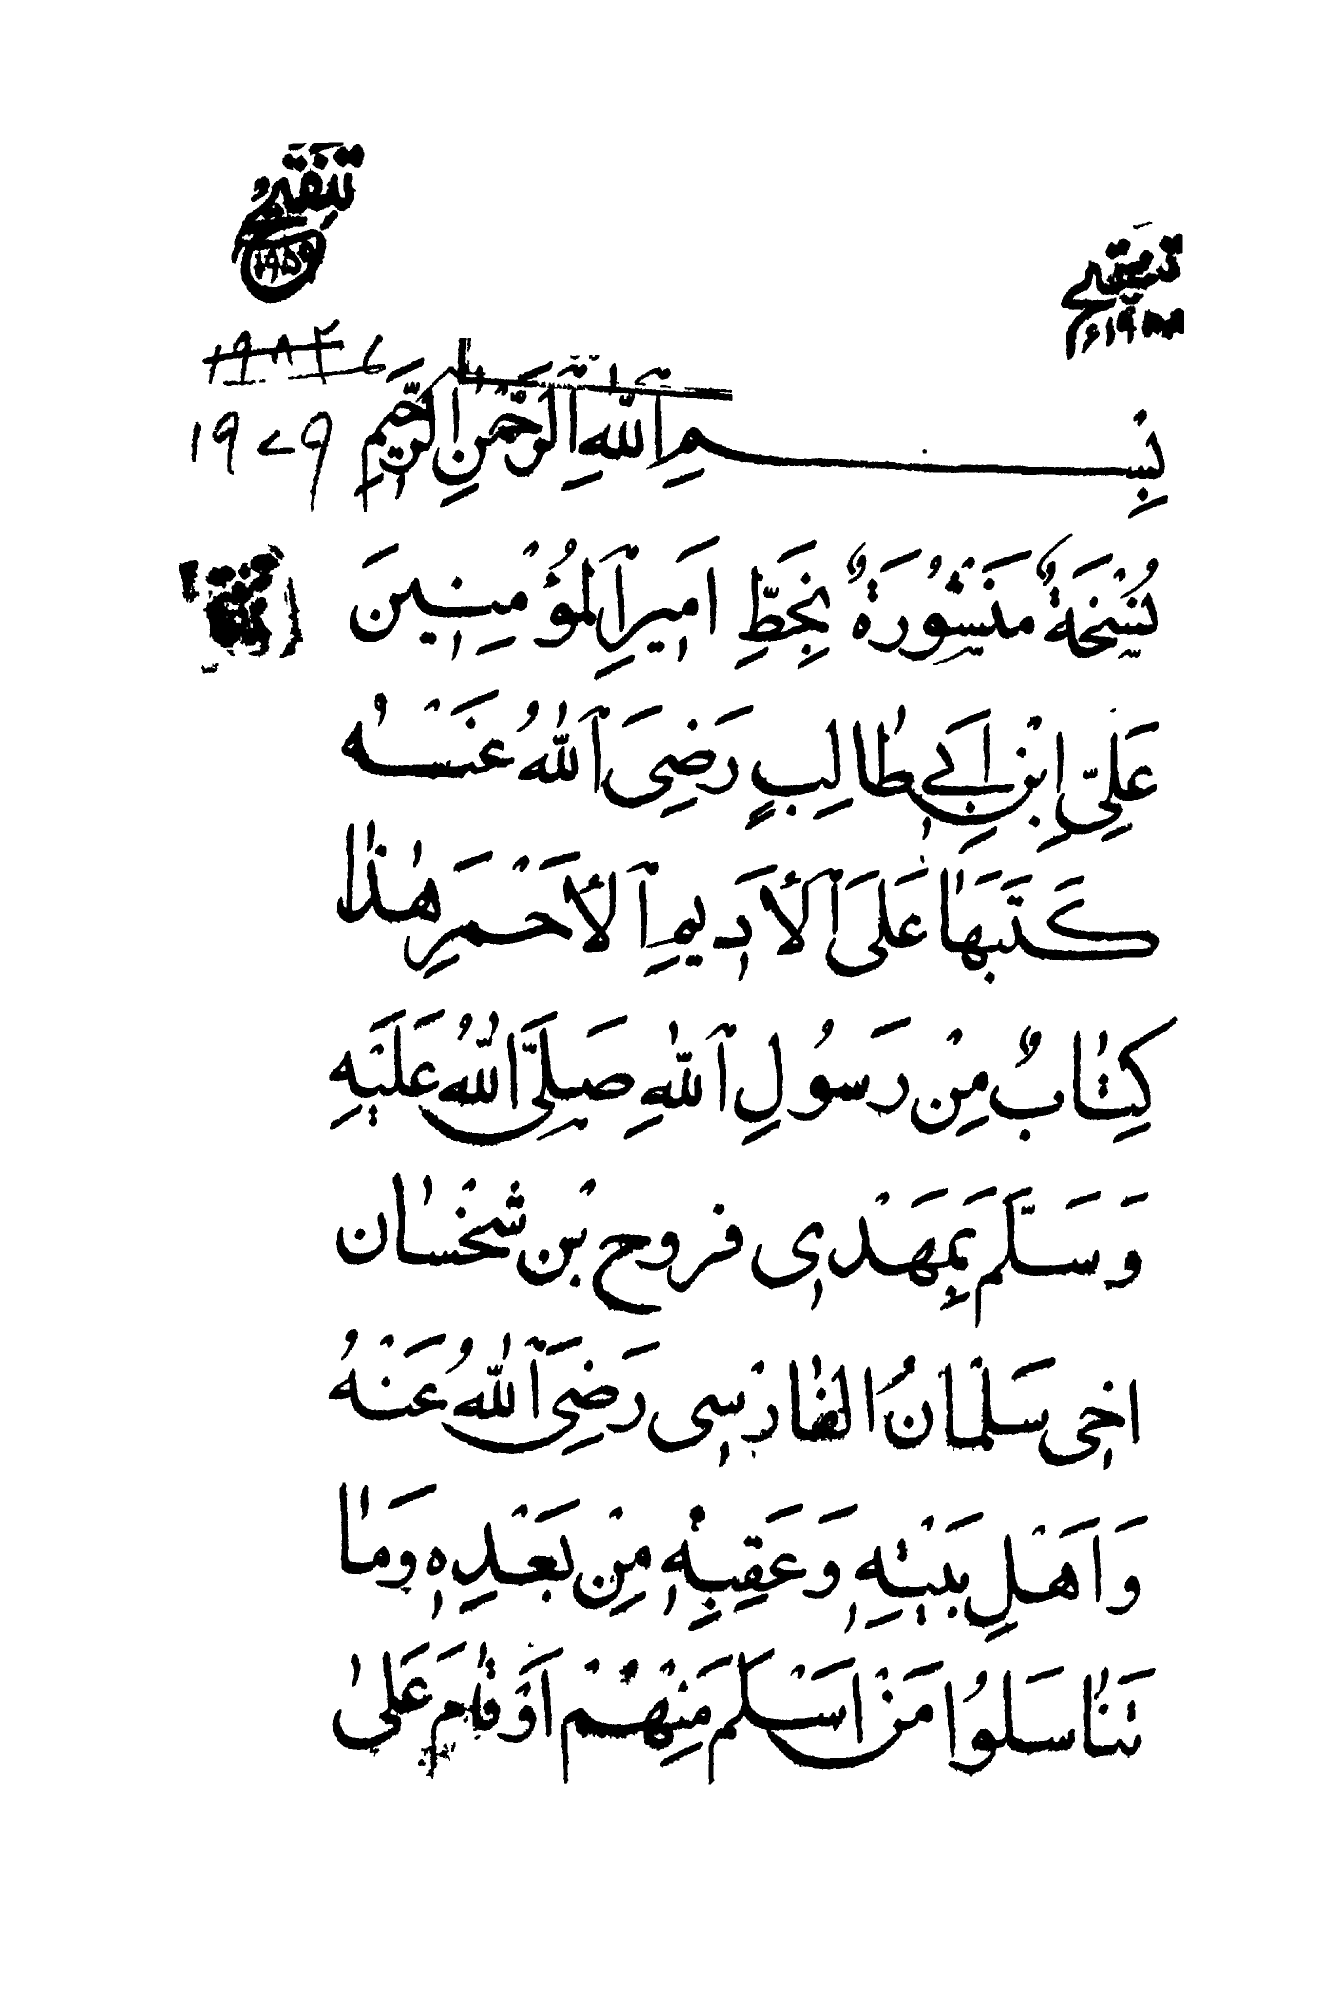 تنقيح
١٩٥٩
تنقيح
١٩٥٨ء
١٩٨٢
١٩٧٩
بِسْمِ ٱللّٰهِ ٱلرَّحْمٰنِ ٱلرَّحِيْمِ
نُسْخَةٌ مَنْشُوْرَةٌ بِخَطِّ اَمِيْرِ ٱلْمُؤْمِنِيْنَ
عَلِيِّ ابْنِ اَبِيْ طَالِبٍ رَضِيَ ٱللّٰهُ عَنْهُ
كَتَبَهَا عَلَى ٱلْأَدِيمِ ٱلْأَحْمَرِ هٰذَا
كِتٰابٌ مِنْ رَسُوْلِ ٱللّٰهِ صَلَّى اللّٰهُ عَلَيْهِ
وَسَلَّمَ بِمَهْدِى فروخ بْن شخْسان
اخِى سَلْمَانُ الفٰارْسِى رَضِىَ ٱللّٰهُ عَنْهُ
وَاَهْلِ بَيْتِهٖ وَعَقِبِهٖ مِنْ بَعْدِهٖ وَمٰا
تَنٰاسَلُوا مَنْ اَسْلَمَ مِنْهُمْ اَوْ قٰامَ عَلىٰ